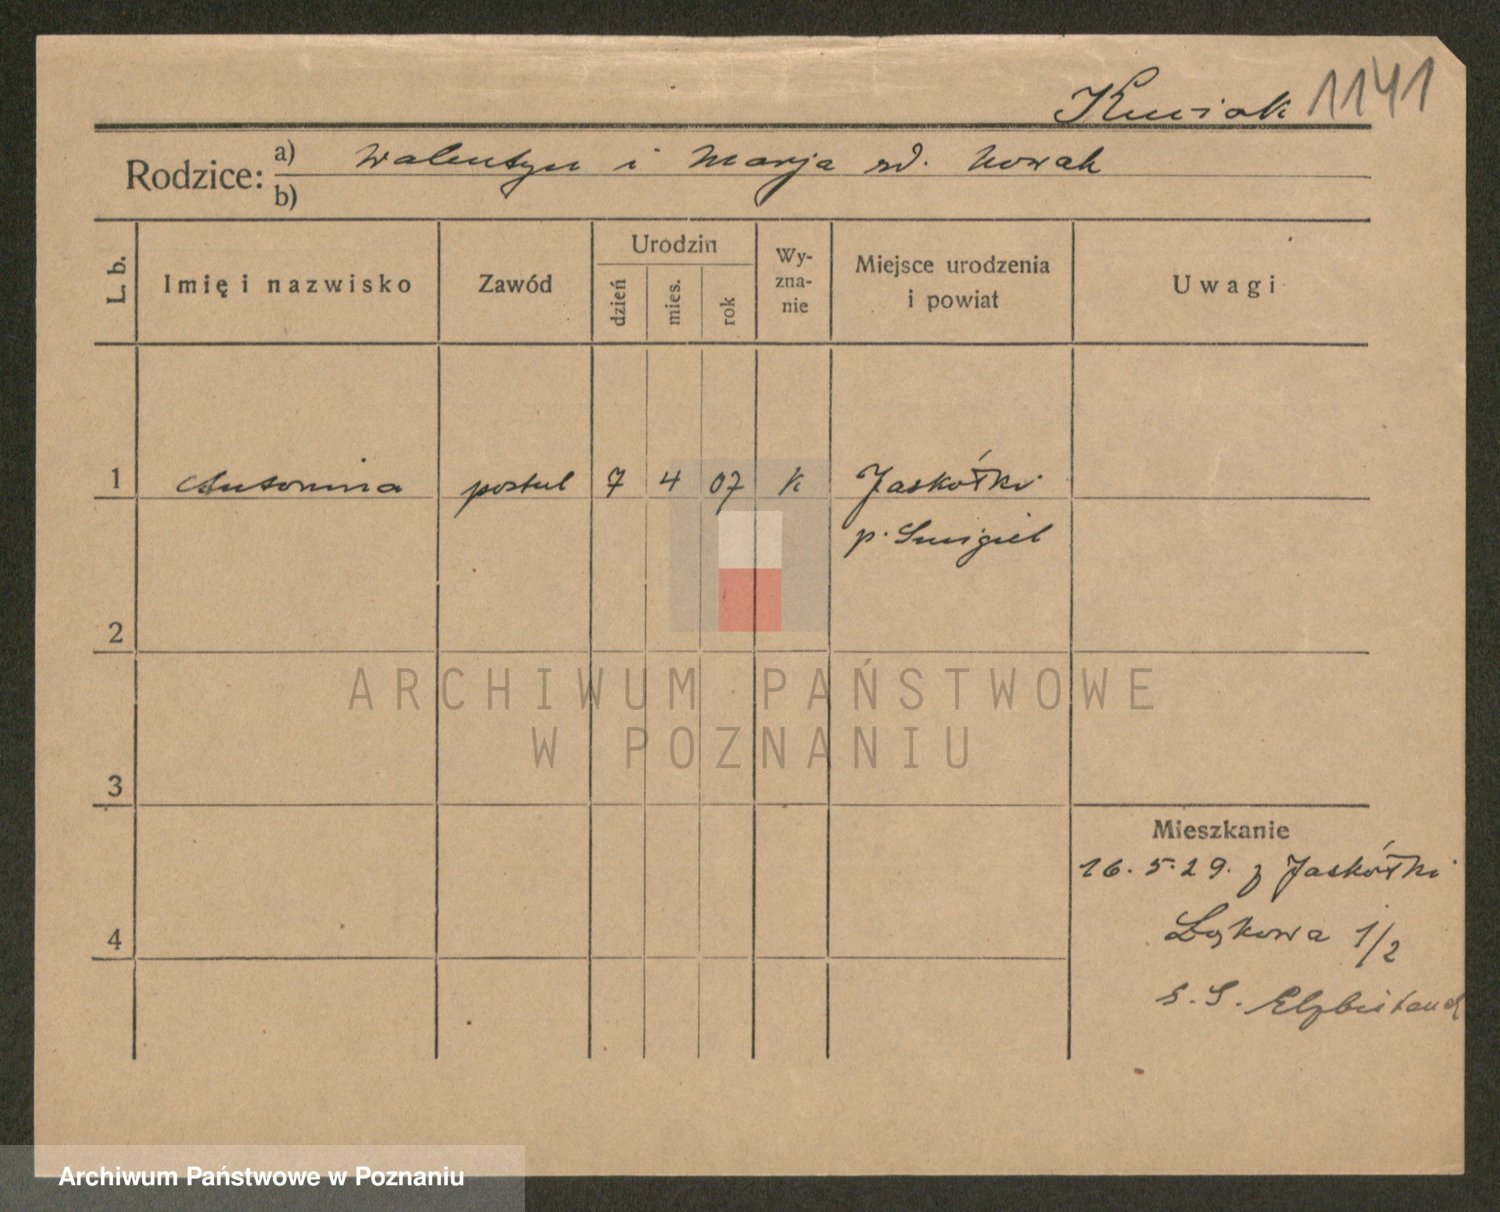 Kuciak 1141
Rodzice: a) Walentyn i Marja rd. Nowak
b)
L. b. Imię i nazwisko Zawód Urodzin dzień mies. rok Wyznanie Miejsce urodzenia i powiat Uwagi
1 Antonina postul 7 4 07 k Jaskółki
p. Smigiel
2
ARCHIWUM PAŃSTWOWE
W POZNANIU
3
Mieszkanie
16.5.29. z Jaskółki
4 Łąkowa 1/2
S. S. Elżbietanek
Archiwum Państwowe w Poznaniu